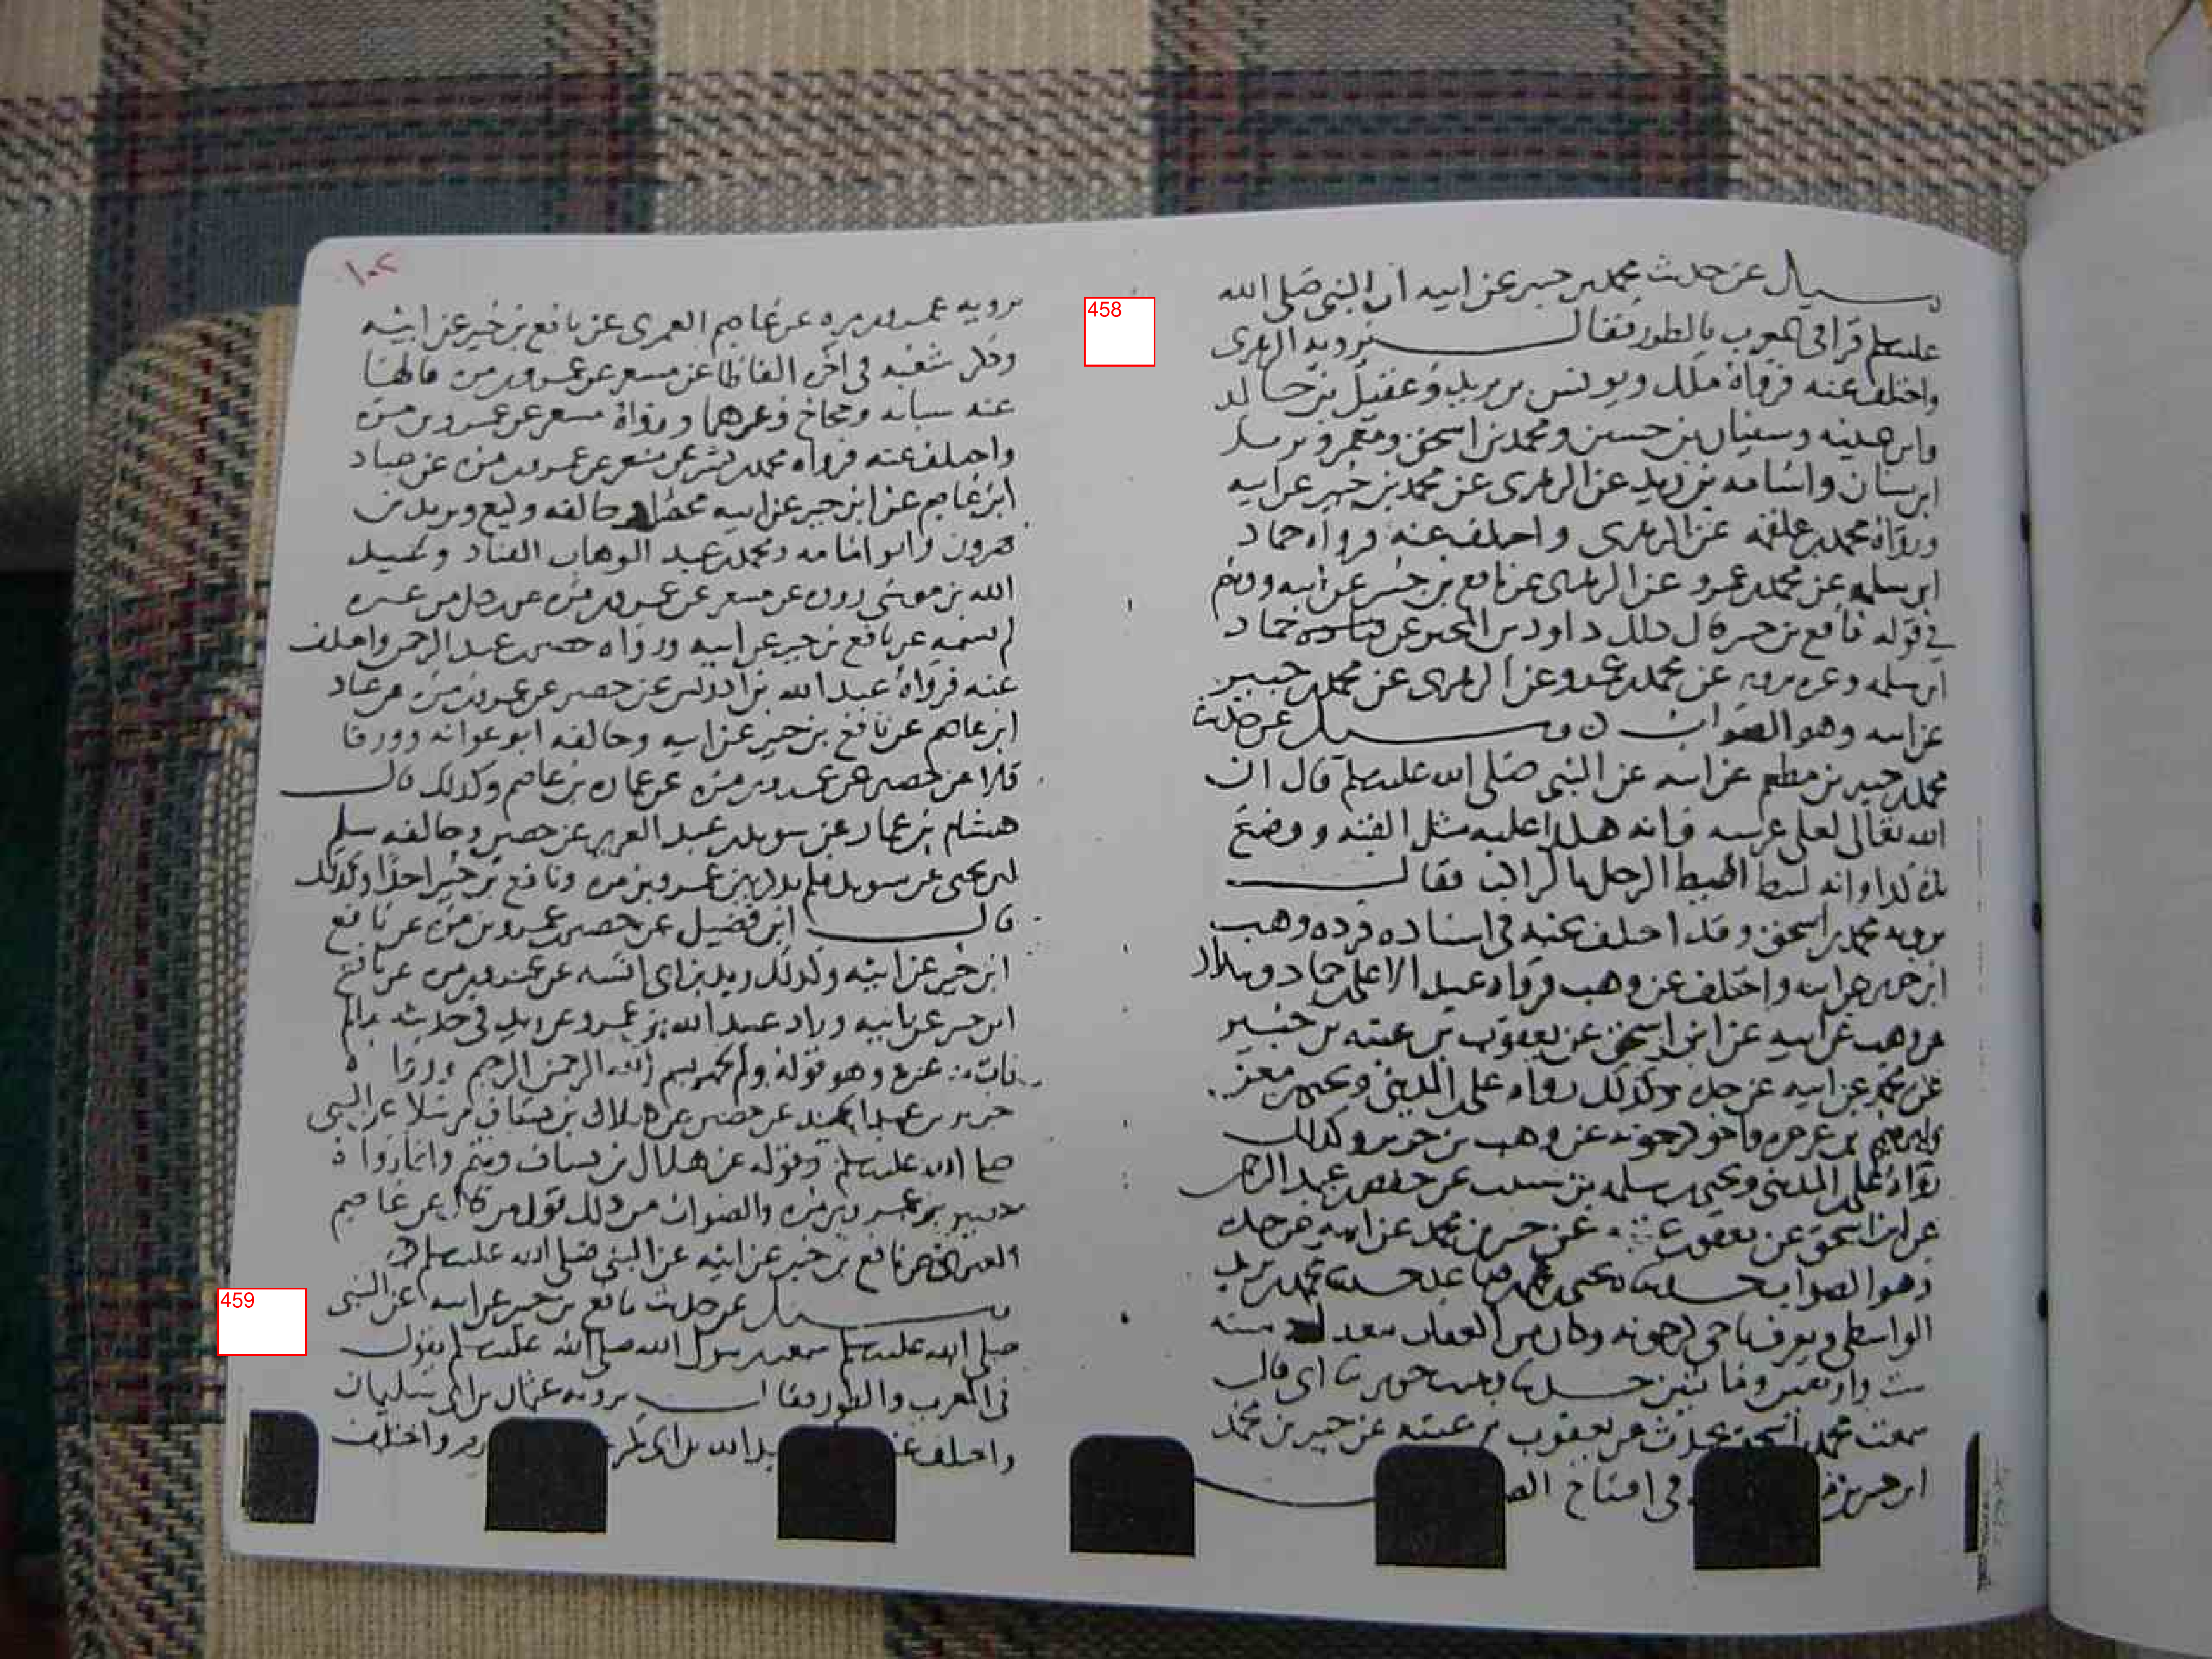 وسئل عن حديث محمد بن جبير عن ابيه ان النبي صلى الله
عليه وسلم قرا في المغرب بالطور فقال يرويه الزهري
واختلف عنه فرواه ملك ويونس بن يزيد وعقيل بن خالد
وابن عيينه وسفيان بن حسين ومحمد بن اسحق ومعمر وبرد
ابن سنان واسامه بن زيد عن الزهري عن محمد بن جبير عن ابيه
ورواه محمد بن علقمه عن الزهري واختلف عنه فرواه حماد
ابن سلمه عن محمد بن عمرو عن الزهري عن نافع بن جبير عن ابيه ووهم
في قوله نافع بن جبير قال ذلك داود بن المحبر عن حماد
ابن سلمه وغيره يرويه عن محمد بن عمرو عن الزهري عن محمد بن جبير
عن ابيه وهو الصواب ن وسئل عن حديث
محمد بن جبير بن مطعم عن ابيه عن النبي صلى الله عليه وسلم قال ان
الله تعالى لعلى عرشه وانه هكذا عليه مثل القبه ووضع
يده كذا وانه ليئط اطيط الرحل بالراكب فقال
يرويه محمد بن اسحق وقد اختلف عنه في اسناده فرده وهب
ابن جرير عن ابيه واختلف عن وهب فرواه عبد الاعلى بن حماد
عن وهب عن ابيه عن ابن اسحق عن يعقوب بن عتبه بن جبير
عن محمد عن ابيه عن جده وكذلك رواه علي المديني ويحيى بن معين
عن وهب بن جرير وكذلك
رواه علي المديني ويحيى سلمه بن شبيب عن حفص بن عبد الرحمن
عن ابن اسحق عن يعقوب عن جبير بن محمد عن ابيه عن جده
وهو الصواب حدثناه يحيى بن محمد بن صاعد حدثنا محمد بن يزيد
الواسطي ويعرف باخي كرخويه وكان من الثقات بعد سنه
ست واربعين ومائتين حدثنا وهب بن جرير ثنا ابي قال
سمعت محمد بن اسحق يحدث عن يعقوب بن عتبه عن جبير بن محمد
ابن جبير في افتتاح
١٠٢
يرويه عمرو بن مره عن عاصم العمري عن نافع بن جبير عن ابيه
وذكر شعبه في اخره الفاظا عن مسعر عن عمرو بن مره قالها
عنه شبابه وحجاج وغيرهما ورواه مسعر عن عمرو بن مره
واختلف عنه فرواه محمد بن بشر عن مسعر عن عمرو بن مره عن عباد
ابن عاصم عن ابن جبير عن ابيه مختصرا وخالفه وكيع ويزيد بن
هرون وابو اسامه ومحمد بن عبد الوهاب القناد وعبيد
الله بن موسى رووه عن مسعر عن عمرو بن مره عن رجل من عنزه
لم يسمه عن نافع بن جبير عن ابيه ورواه حصين بن عبد الرحمن واختلف
عنه فرواه عبد الله بن ادريس عن حصين عن عمرو بن مره عن عباد
ابن عاصم عن نافع بن جبير عن ابيه وخالفه ابو عوانه وورقا
قالا عن حصين عن عمرو بن مره عن عماره بن عاصم وكذلك قال
هشام بن عمار عن سويد بن عبد العزيز عن حصين وخالفه سليم
ابن يحيى عن سويد فلم يذكر بين عمرو بن مره ونافع بن جبير احدا وكذلك
قال ابن فضيل عن حصين عن عمرو بن مره عن نافع
ابن جبير عن ابيه وكذلك زيد بن ابي انيسه عن عمرو بن مره عن نافع
ابن جبير عن ابيه وزاد عبيد الله بن عمرو عن زيد في حديثه
وهو قوله ولم يجهر ببسم الله الرحمن الرحيم ورواه
جرير بن عبد الحميد عن حصين عن هلال بن يساف مرسلا عن النبي
صلى الله عليه وسلم وقوله عن هلال بن يساف وهم وانما رواه
حصين عن عمرو بن مره والصواب من ذلك قول من قال عن عاصم
العنزي عن نافع بن جبير عن ابيه عن النبي صلى الله عليه وسلم
وسئل عن حديث نافع بن جبير عن ابيه عن النبي
صلى الله عليه وسلم سمعت رسول الله صلى الله عليه وسلم يقول
في المغرب والطور فقال يرويه عثمان بن ابي سليمان
واختلف عنه واختلف
458
459